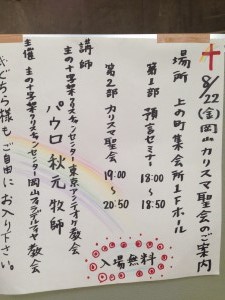 8/22(金)岡山カリスマ聖会のご案内
場所 上の町集会所1Fホール
第1部 預言セミナー 18:00~18:50
第2部 カリスマ聖会 19:00~20:50
講師
主の十字架クリスチャンセンター東京アンテオケ教会
パウロ秋元牧師
主催 主の十字架クリスチャンセンター岡山フィラデルフィヤ教会
どちら様もご自由にお入り下さい。
入場無料